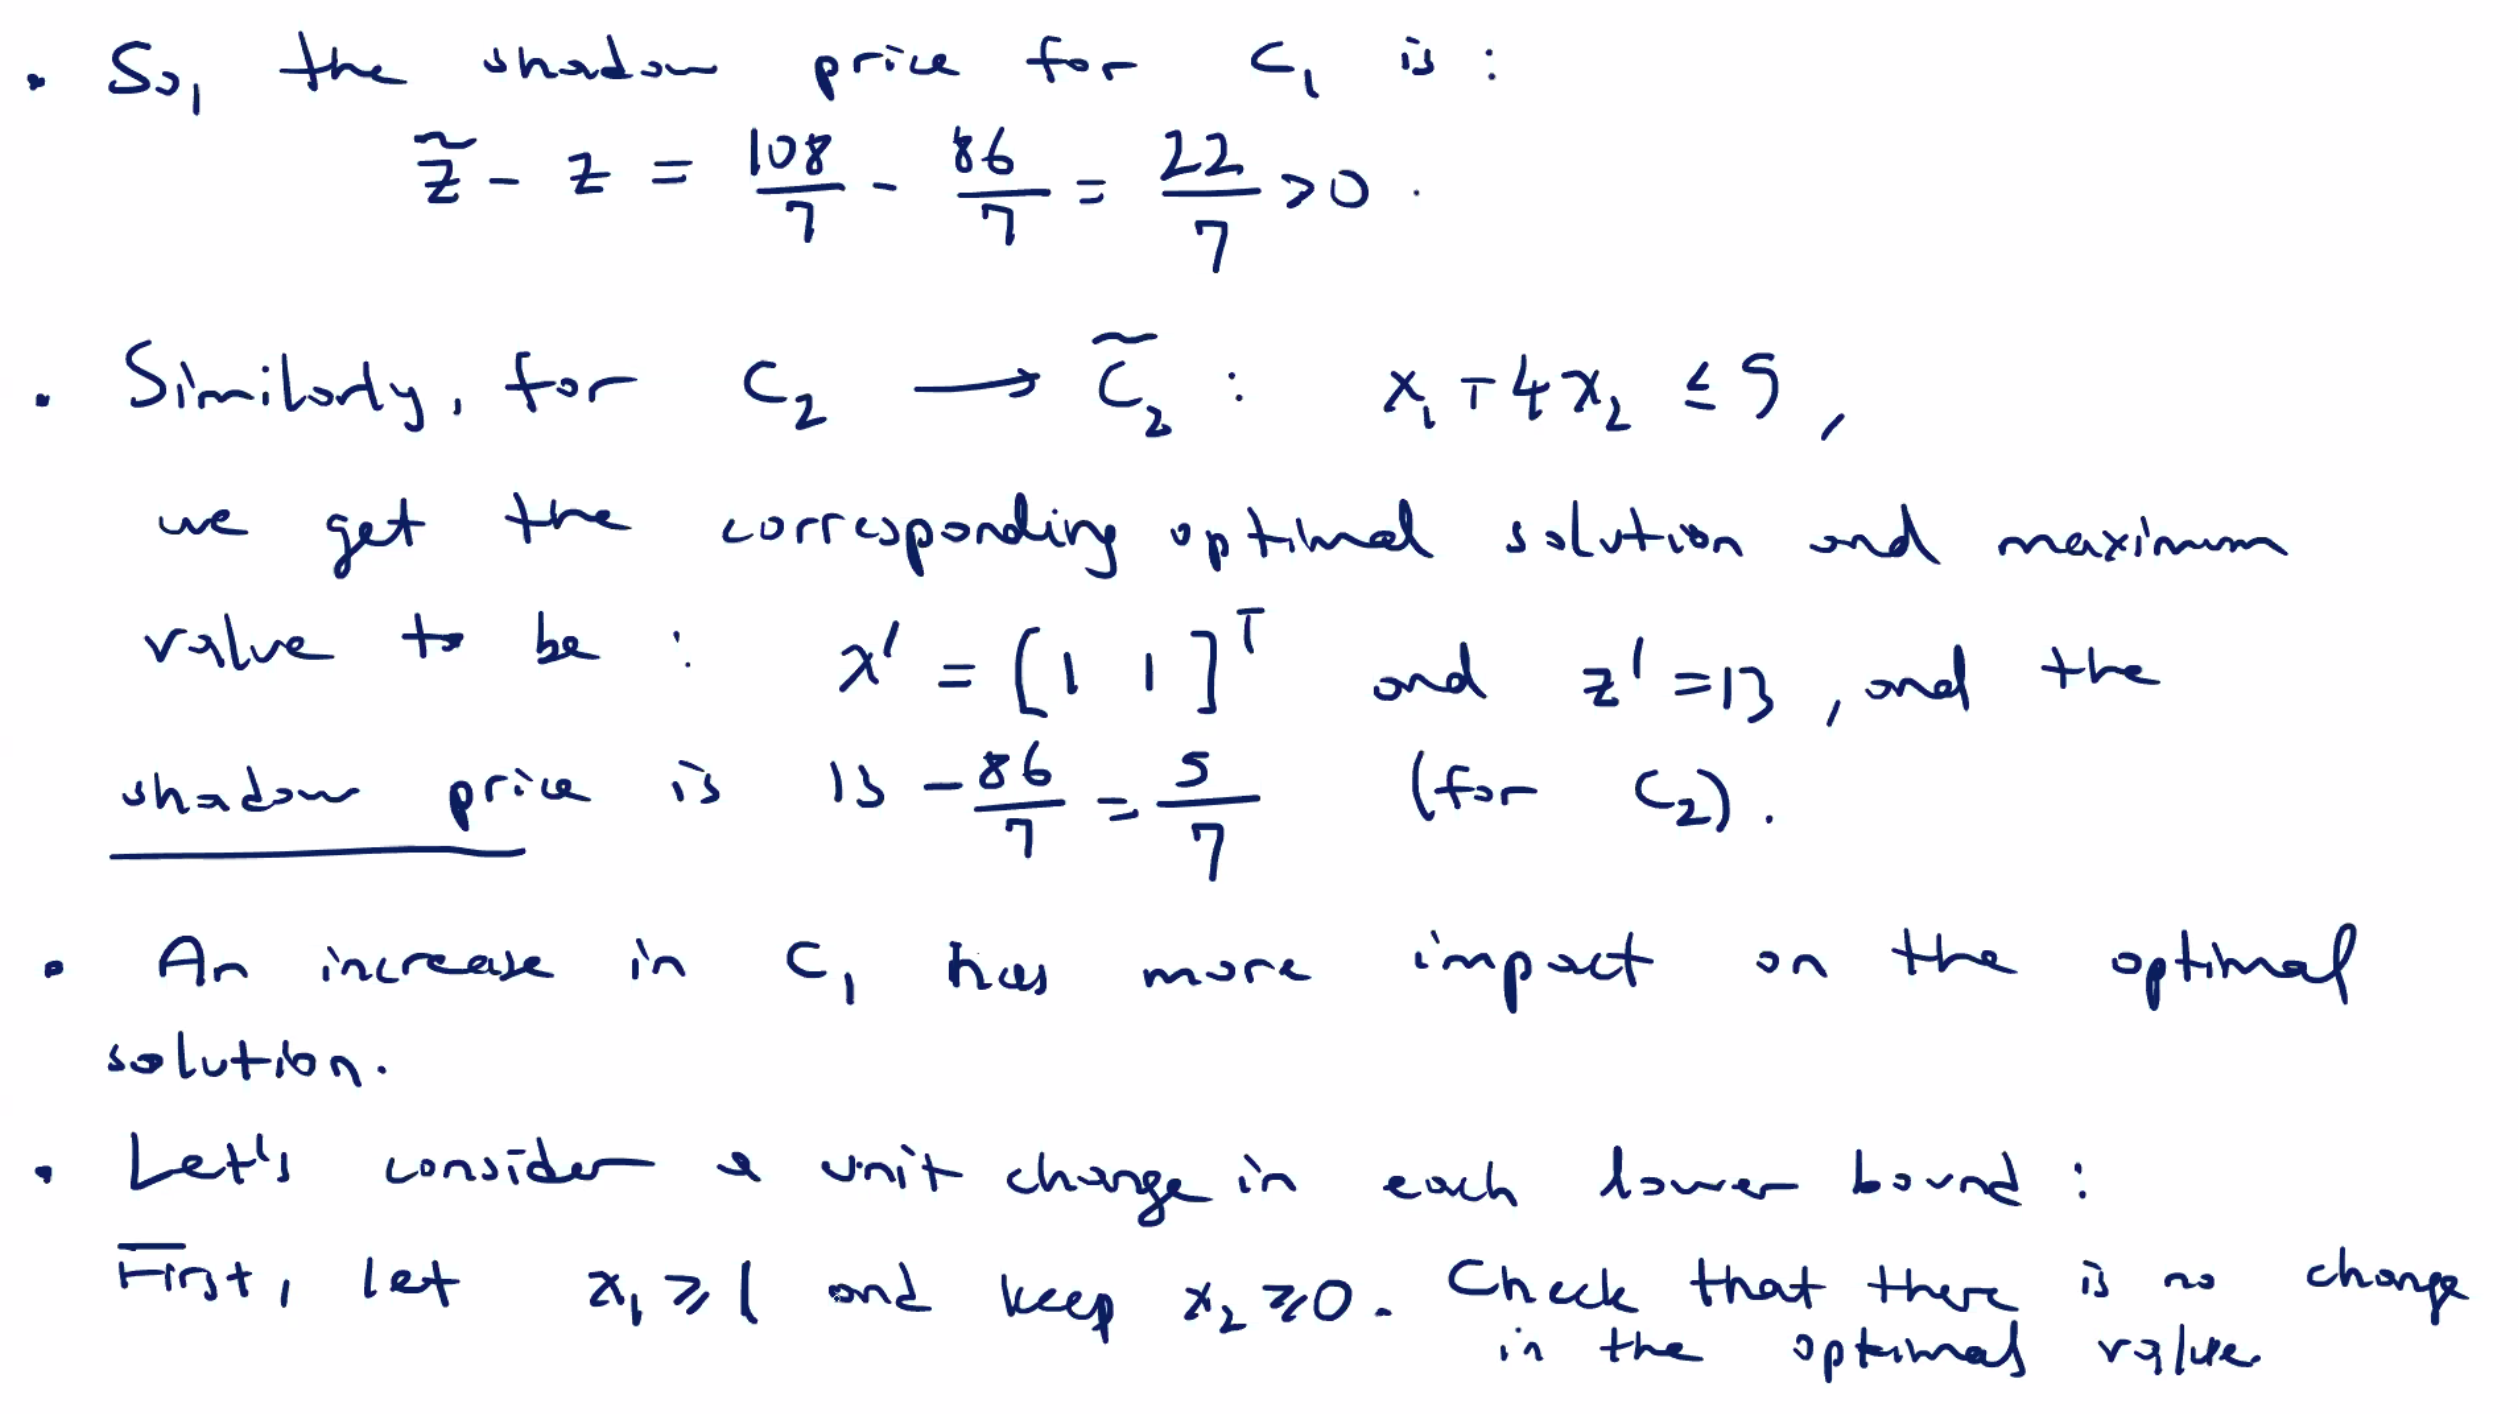 ▪ So, the shadow price for C₁ is :
z̃ - z = 108/7 - 86/7 = 22/7 > 0 .
▪ Similarly, for C₂ → C̃₂ : x₁ + 4x₂ ≤ 5 ,
we get the corresponding optimal solution and maximum
value to be : x' = [1 1]ᵀ and z' = 13 , and the
shadow price is 13 - 86/7 = 5/7 (for C₂).
▪ An increase in C₁ has more impact on the optimal
solution.
▪ Let's consider a unit change in each lower bound :
First, let x₁ ≥ 1 and keep x₂ ≥ 0. Check that there is no change
in the optimal value.